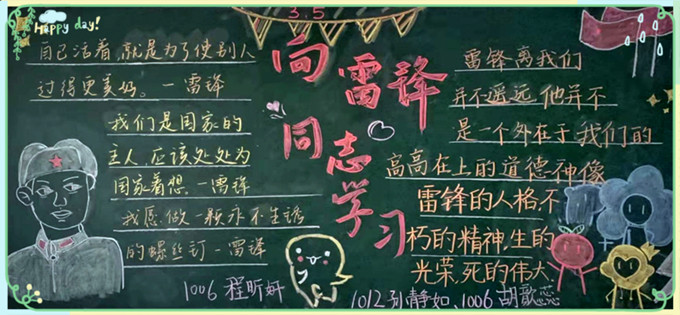 Happy day!
3.5
向雷锋
同志学习
自己活着,就是为了使别人
过得更美好。—雷锋
我们是国家的
主人,应该处处为
国家着想.—雷锋
我愿做一颗永不生锈
的螺丝钉—雷锋
雷锋离我们
并不遥远,他并不
是一个外在于我们的
高高在上的道德神像
雷锋的人格,不
朽的精神,生的
光荣,死的伟大
1006 程昕妍
1012 孙静如、1006 胡歆蕊